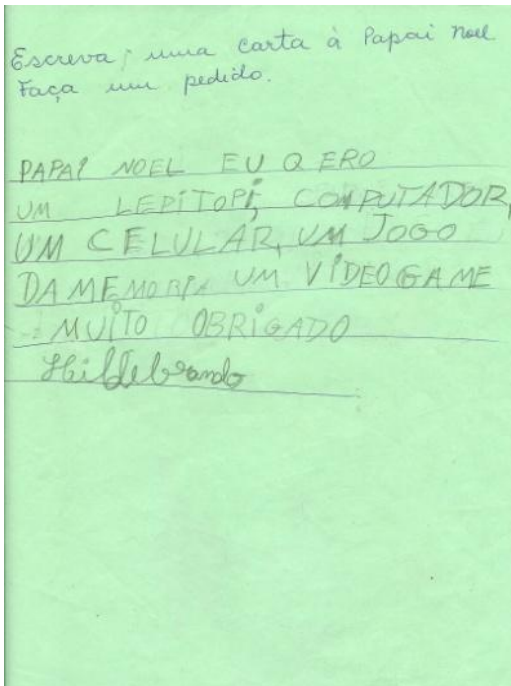 Escreva; uma carta à Papai Noel
Faça um pedido.
PAPAI NOEL EU QERO
UM LEPITOPI, COMPUTADOR,
UM CELULAR, UM JOGO
DA MEMORIA UM VIDEO GAME
MUITO OBRIGADO
Hildebrando